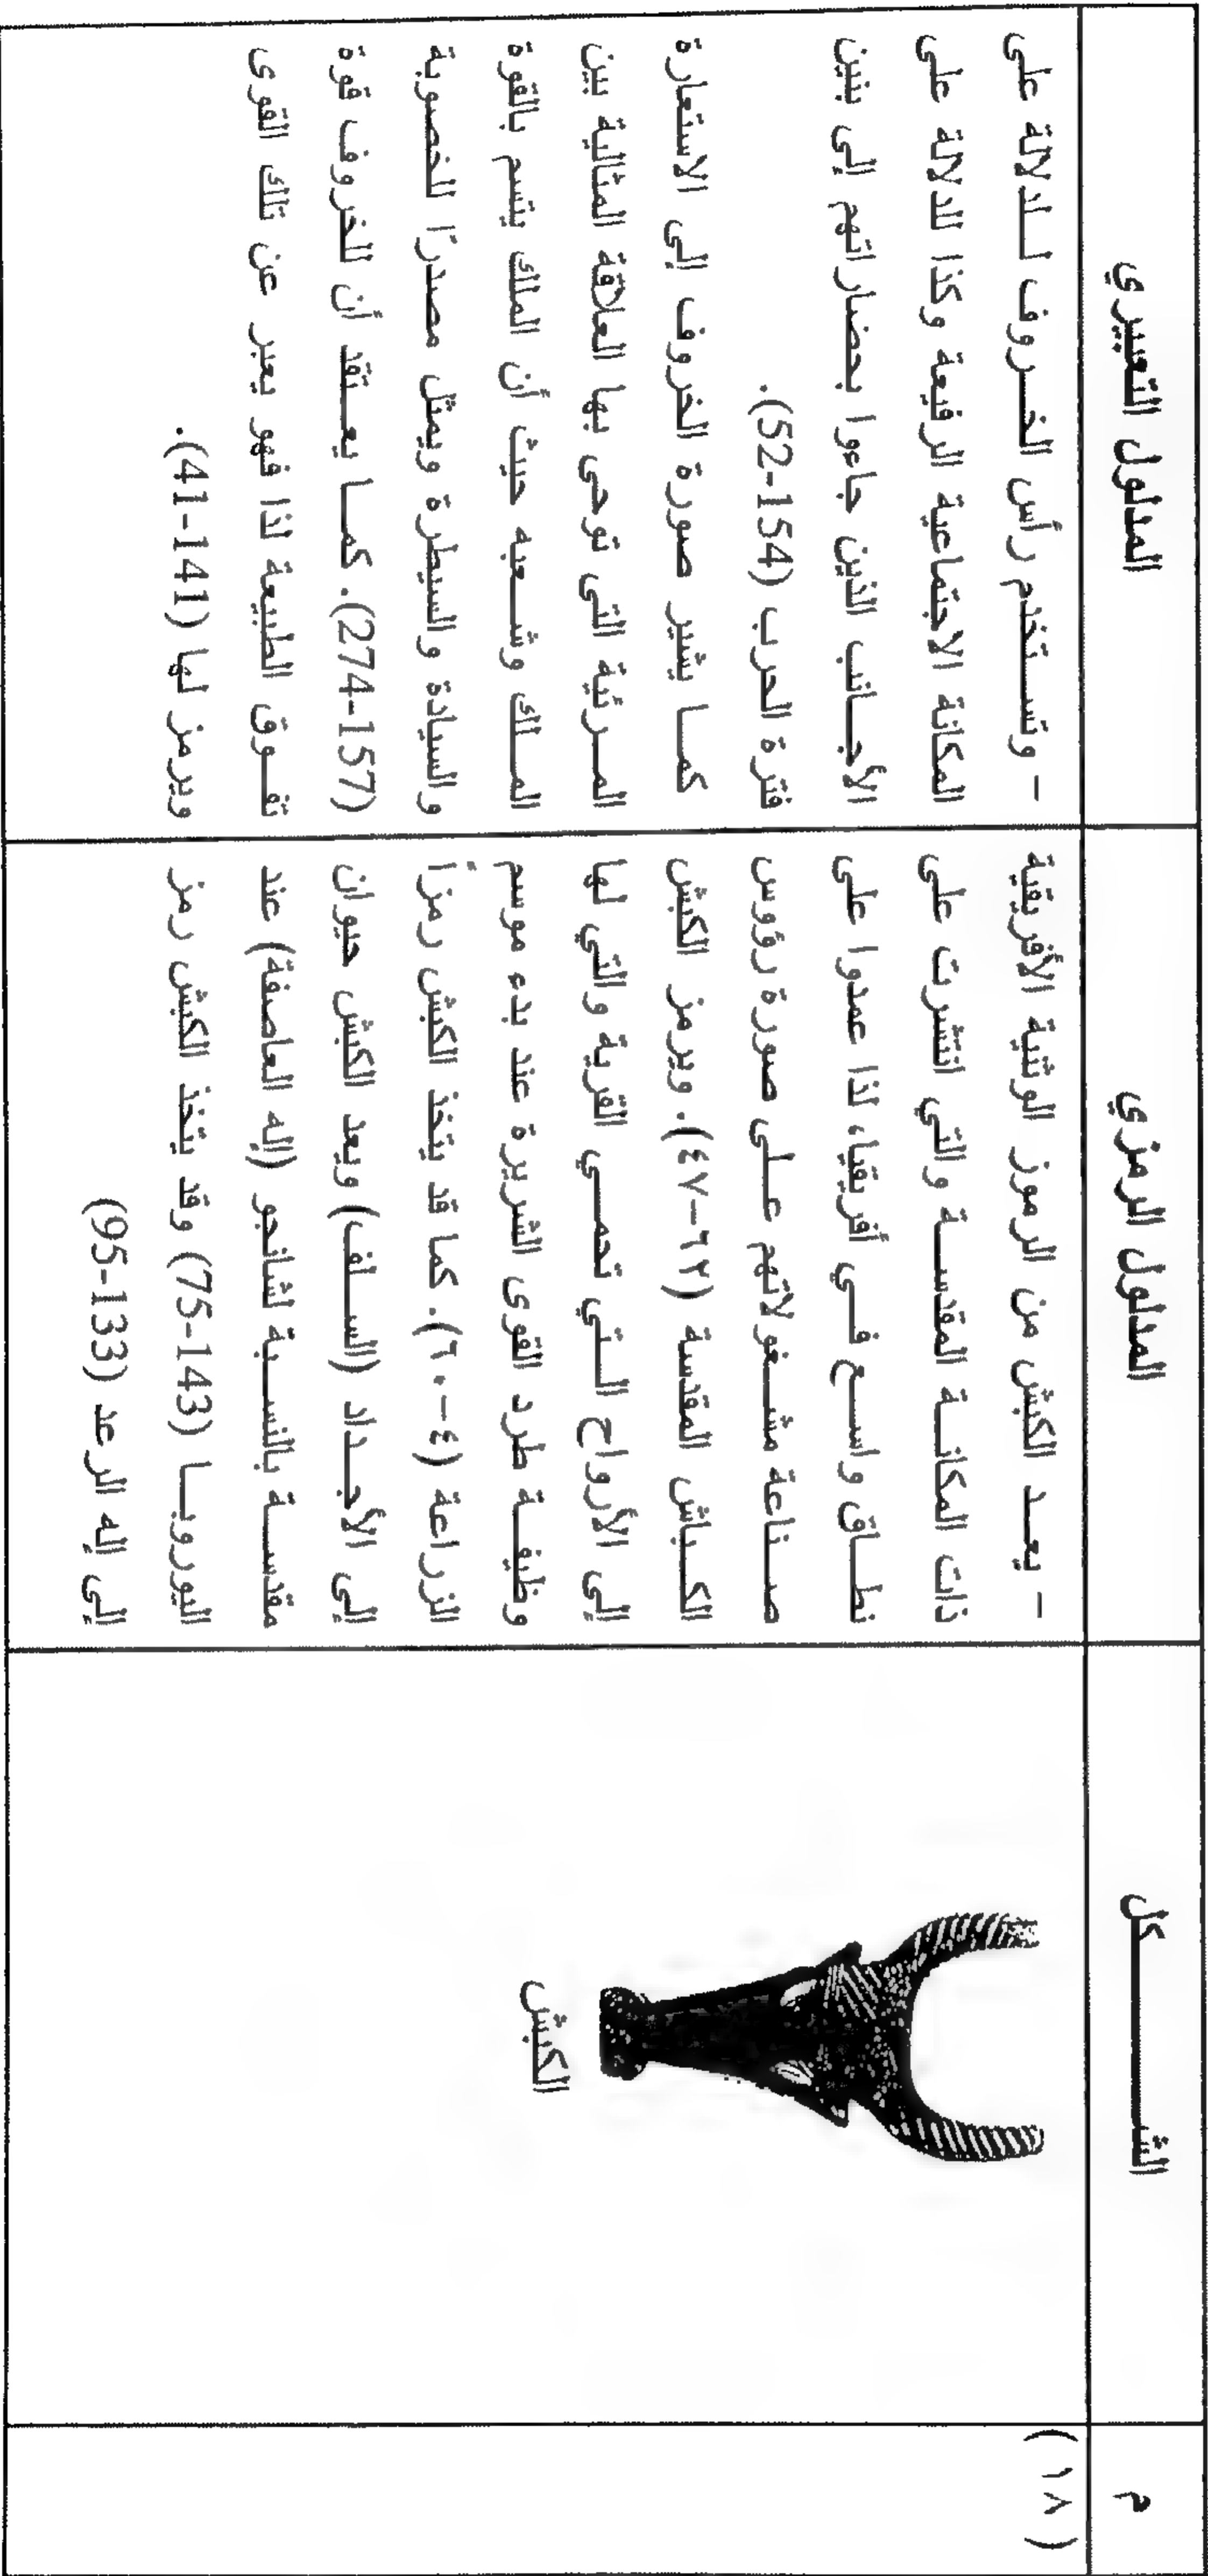 م
الشـــــــــكل
المدلول الرمزي
المدلول التعبيري
( ١٨ )
الكبش
– يعـــد الكبش من الرموز الوثنية الأفريقية
ذات المكانـــة المقدســـة والتي انتشرت على
نطـــاق واســـع فـــي أفريقيا، لذا عمدوا على
صـــناعة مشـــغولاتهم عـــلى صورة رؤوس
الكـــباش المقدسة (٦٢-٤٧). ويرمز الكبش
إلى الأرواح الـــتي تحمـــي القرية والتي لها
وظيفـــة طرد القوى الشريرة عند بدء موسم
الزراعة (٤-٦٠). كما قد يتخذ الكبش رمزاً
إلى الأجـــداد (الســـلف) ويعد الكبش حيوان
مقدســـة بالنســـبة لشانجو (إله العاصفة) عند
اليوروبـــا (143-75) وقد يتخذ الكبش رمز
إلى إله الرعد (133-95)
– وتســـتخدم رأس الخـــروف لـــدلالة على
المكانة الاجتماعية الرفيعة وكذا للدلالة على
الأجـــانب الذين جاءوا بحضاراتهم إلى بنين
فترة الحرب (154-52).
كمـــا يشير صورة الخروف إلى الاستعارة
المـــرئية التى توحى بها العلاقة المثالية بين
المـــلك وشـــعبه حيث أن الملك يتسم بالقوة
والسيادة والسيطرة ويمثل مصدرًا للخصوبة
(157-274). كمـــا يعـــتقد أن للخروف قوة
تفـــوق الطبيعة لذا فهو يعبر عن تلك القوى
ويرمز لها (141-41).